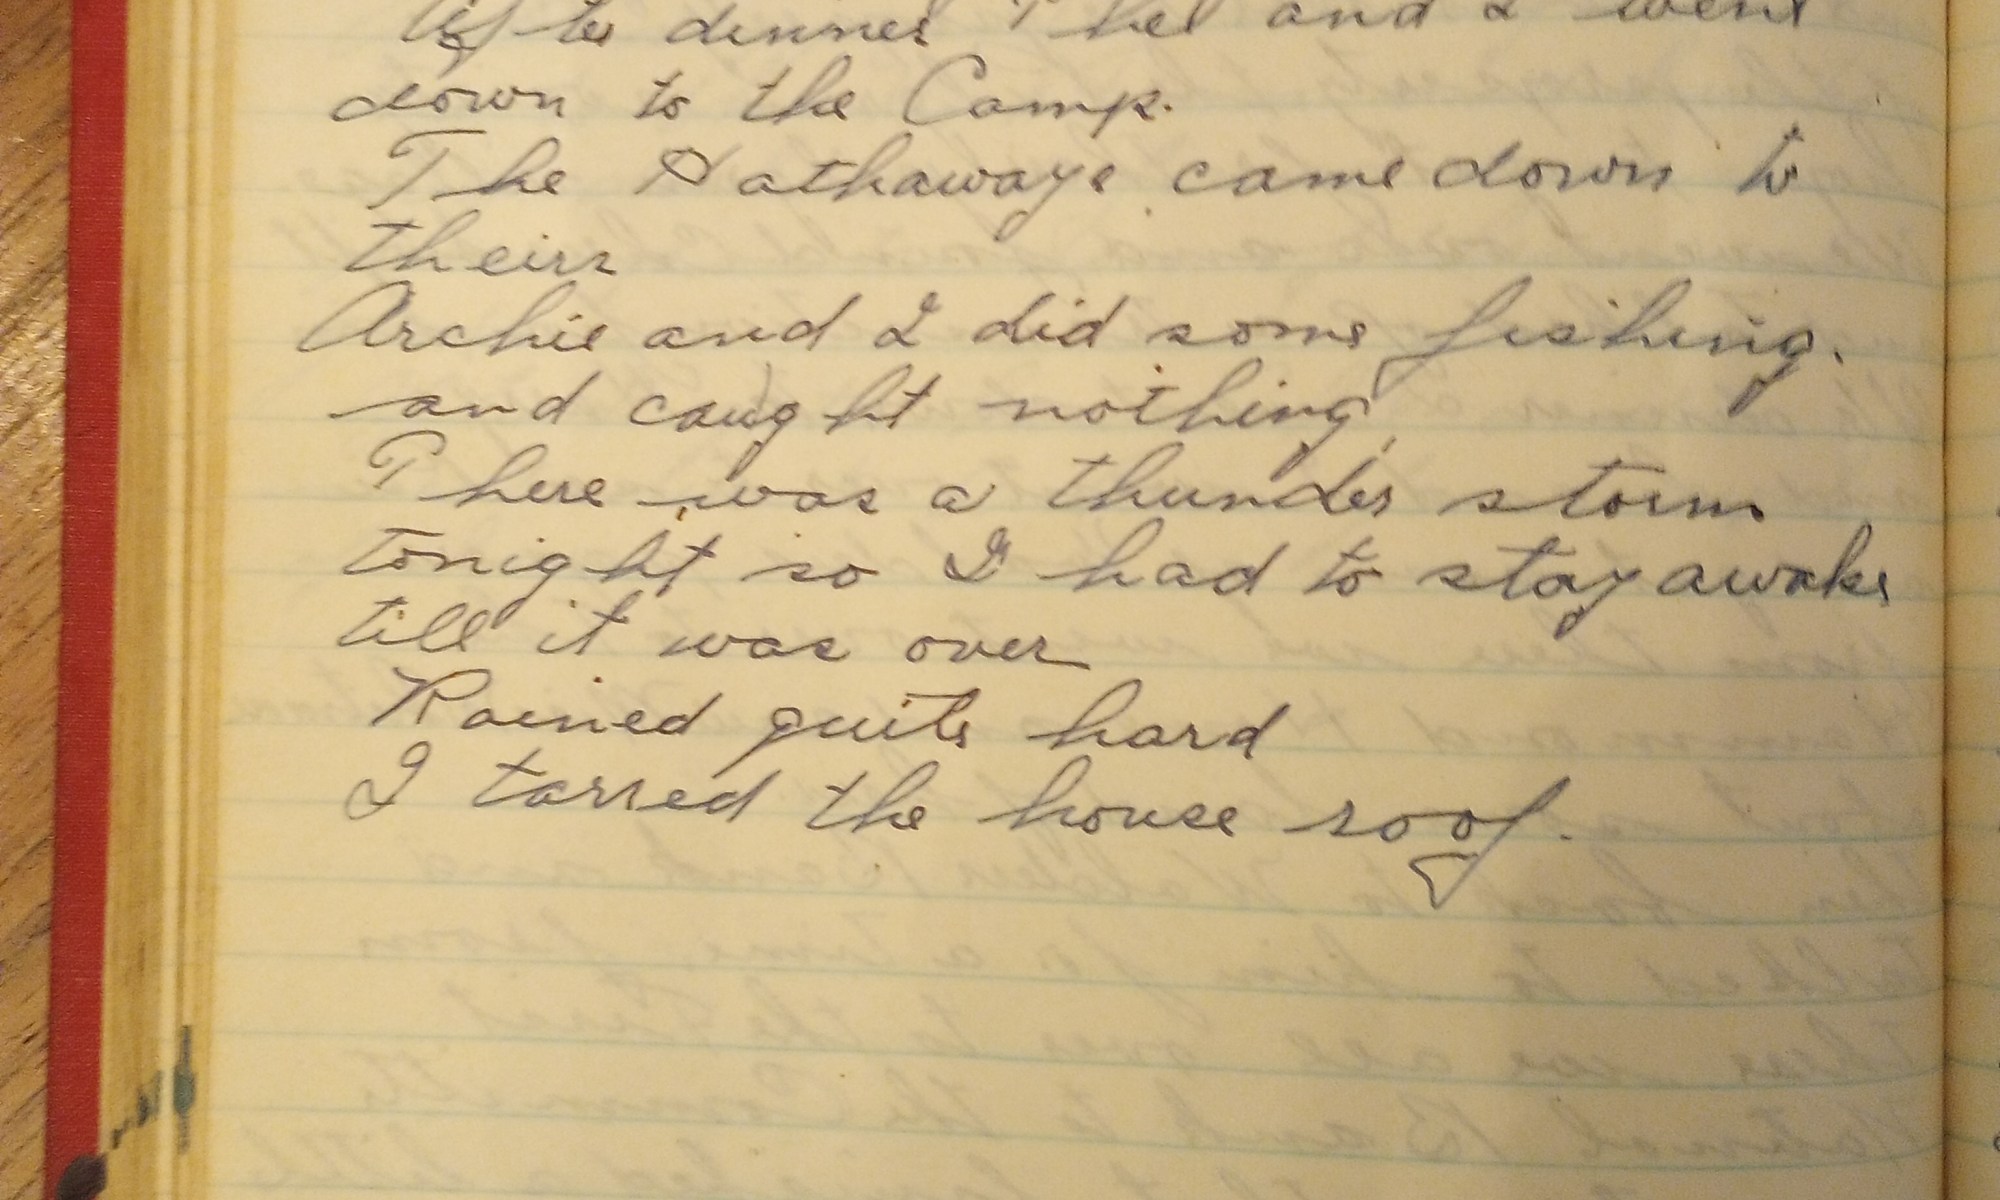 After dinner Thel and I went
down to the Camp.
The Hathaways came down to
theirs
Archie and I did some fishing.
and caught nothing,
There was a thunder storm
tonight so I had to stay awake
till it was over
Rained quite hard
I tarred the house roof.